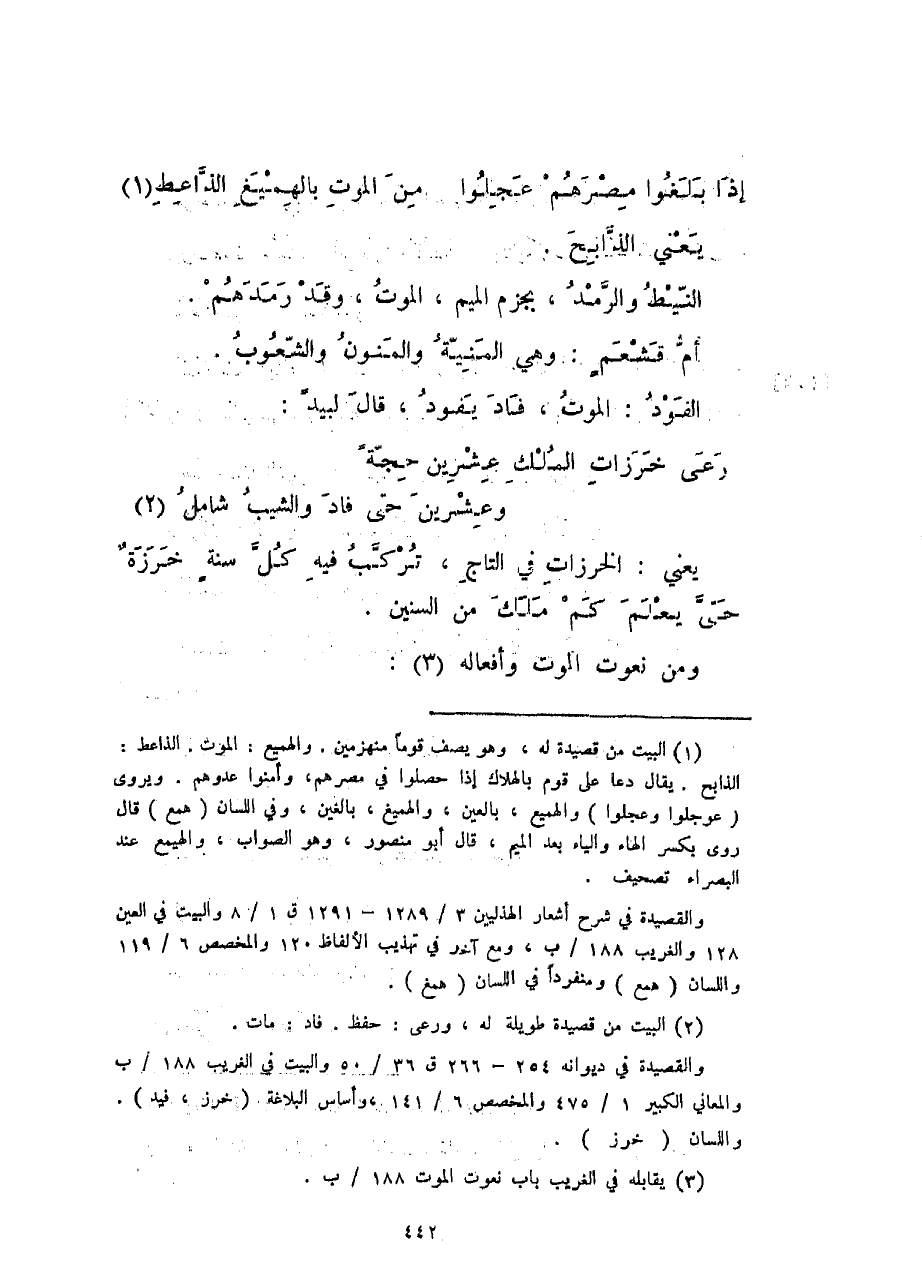 إذَا بَلَغُوا مِصْرَهُمْ عَجِلُوا مِنَ الموتِ بالهِمْيَغِ الذَّاعِطِ(١)
يَعْني الذَّابِحَ .
النَّيْطُ والرَّمْدُ ، بجزم الميم ، الموتُ ، وقَدْ رَمَدَهُمْ .
أمُّ قَشْعَمٍ : وهي المَنِيّةُ والمَنونُ والشّعُوبُ .
الفَوْدُ : الموتُ ، فَادَ يَفودُ ، قالَ لبيدٌ :
رَعَى خَرَزاتِ المُلْكِ عِشْرِين حِجّةً
وعِشْرينَ حتّى فادَ والشيبُ شاملُ (٢)
يعني : الخرزاتِ في التاجِ ، تُرْكَّبُ فيهِ كُلَّ سنةٍ خَرَزَةٌ
حَتَّى يعْلَمَ كَمْ مَلَكَ من السنين .
ومن نعوت الموت وأفعاله (٣) :
(١) البيت من قصيدة له ، وهو يصف قوماً منهزمين . والهميع : الموت . الذاعط :
الذابح . يقال دعا على قوم بالهلاك إذا حصلوا في مصرهم، وأمنوا عدوهم . ويروى
( عوجلوا وعجلوا ) والهميع ، بالعين ، والهميغ ، بالغين ، وفي اللسان ( همع ) قال
روى بكسر الهاء والياء بعد الميم ، قال أبو منصور ، وهو الصواب ، والهيمع عند
البصراء تصحيف .
والقصيدة في شرح أشعار الهذليين ٣ / ١٢٨٩ – ١٢٩١ ق ١ / ٨ والبيت في العين
١٢٨ والغريب ١٨٨ / ب ، ومع آخر في تهذيب الألفاظ ١٢٠ والمخصص ٦ / ١١٩
واللسان ( همع ) ومنفرداً في اللسان ( همغ ) .
(٢) البيت من قصيدة طويلة له ، ورعى : حفظ . فاد : مات .
والقصيدة في ديوانه ٢٥٤ – ٢٦٦ ق ٣٦ / ٥٠ والبيت في الغريب ١٨٨ / ب
والمعاني الكبير ١ / ٤٧٥ والمخصص ٦ / ١٤١ ،وأساس البلاغة ( خرز ، فيد ) .
واللسان ( خرز ) .
(٣) يقابله في الغريب باب نعوت الموت ١٨٨ / ب .
٤٤٢